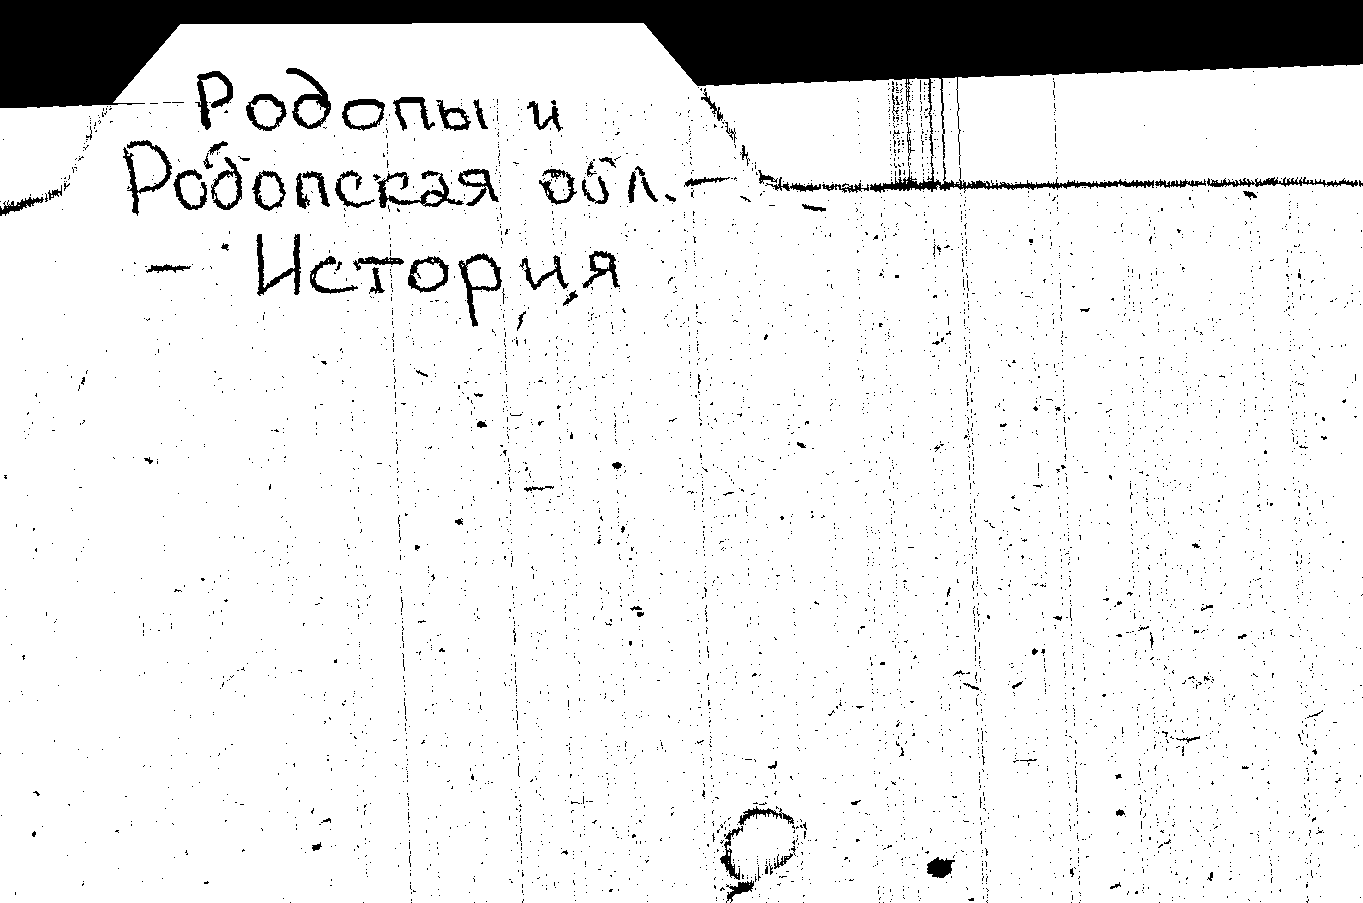 Родопы и
Родопская обл.
— История